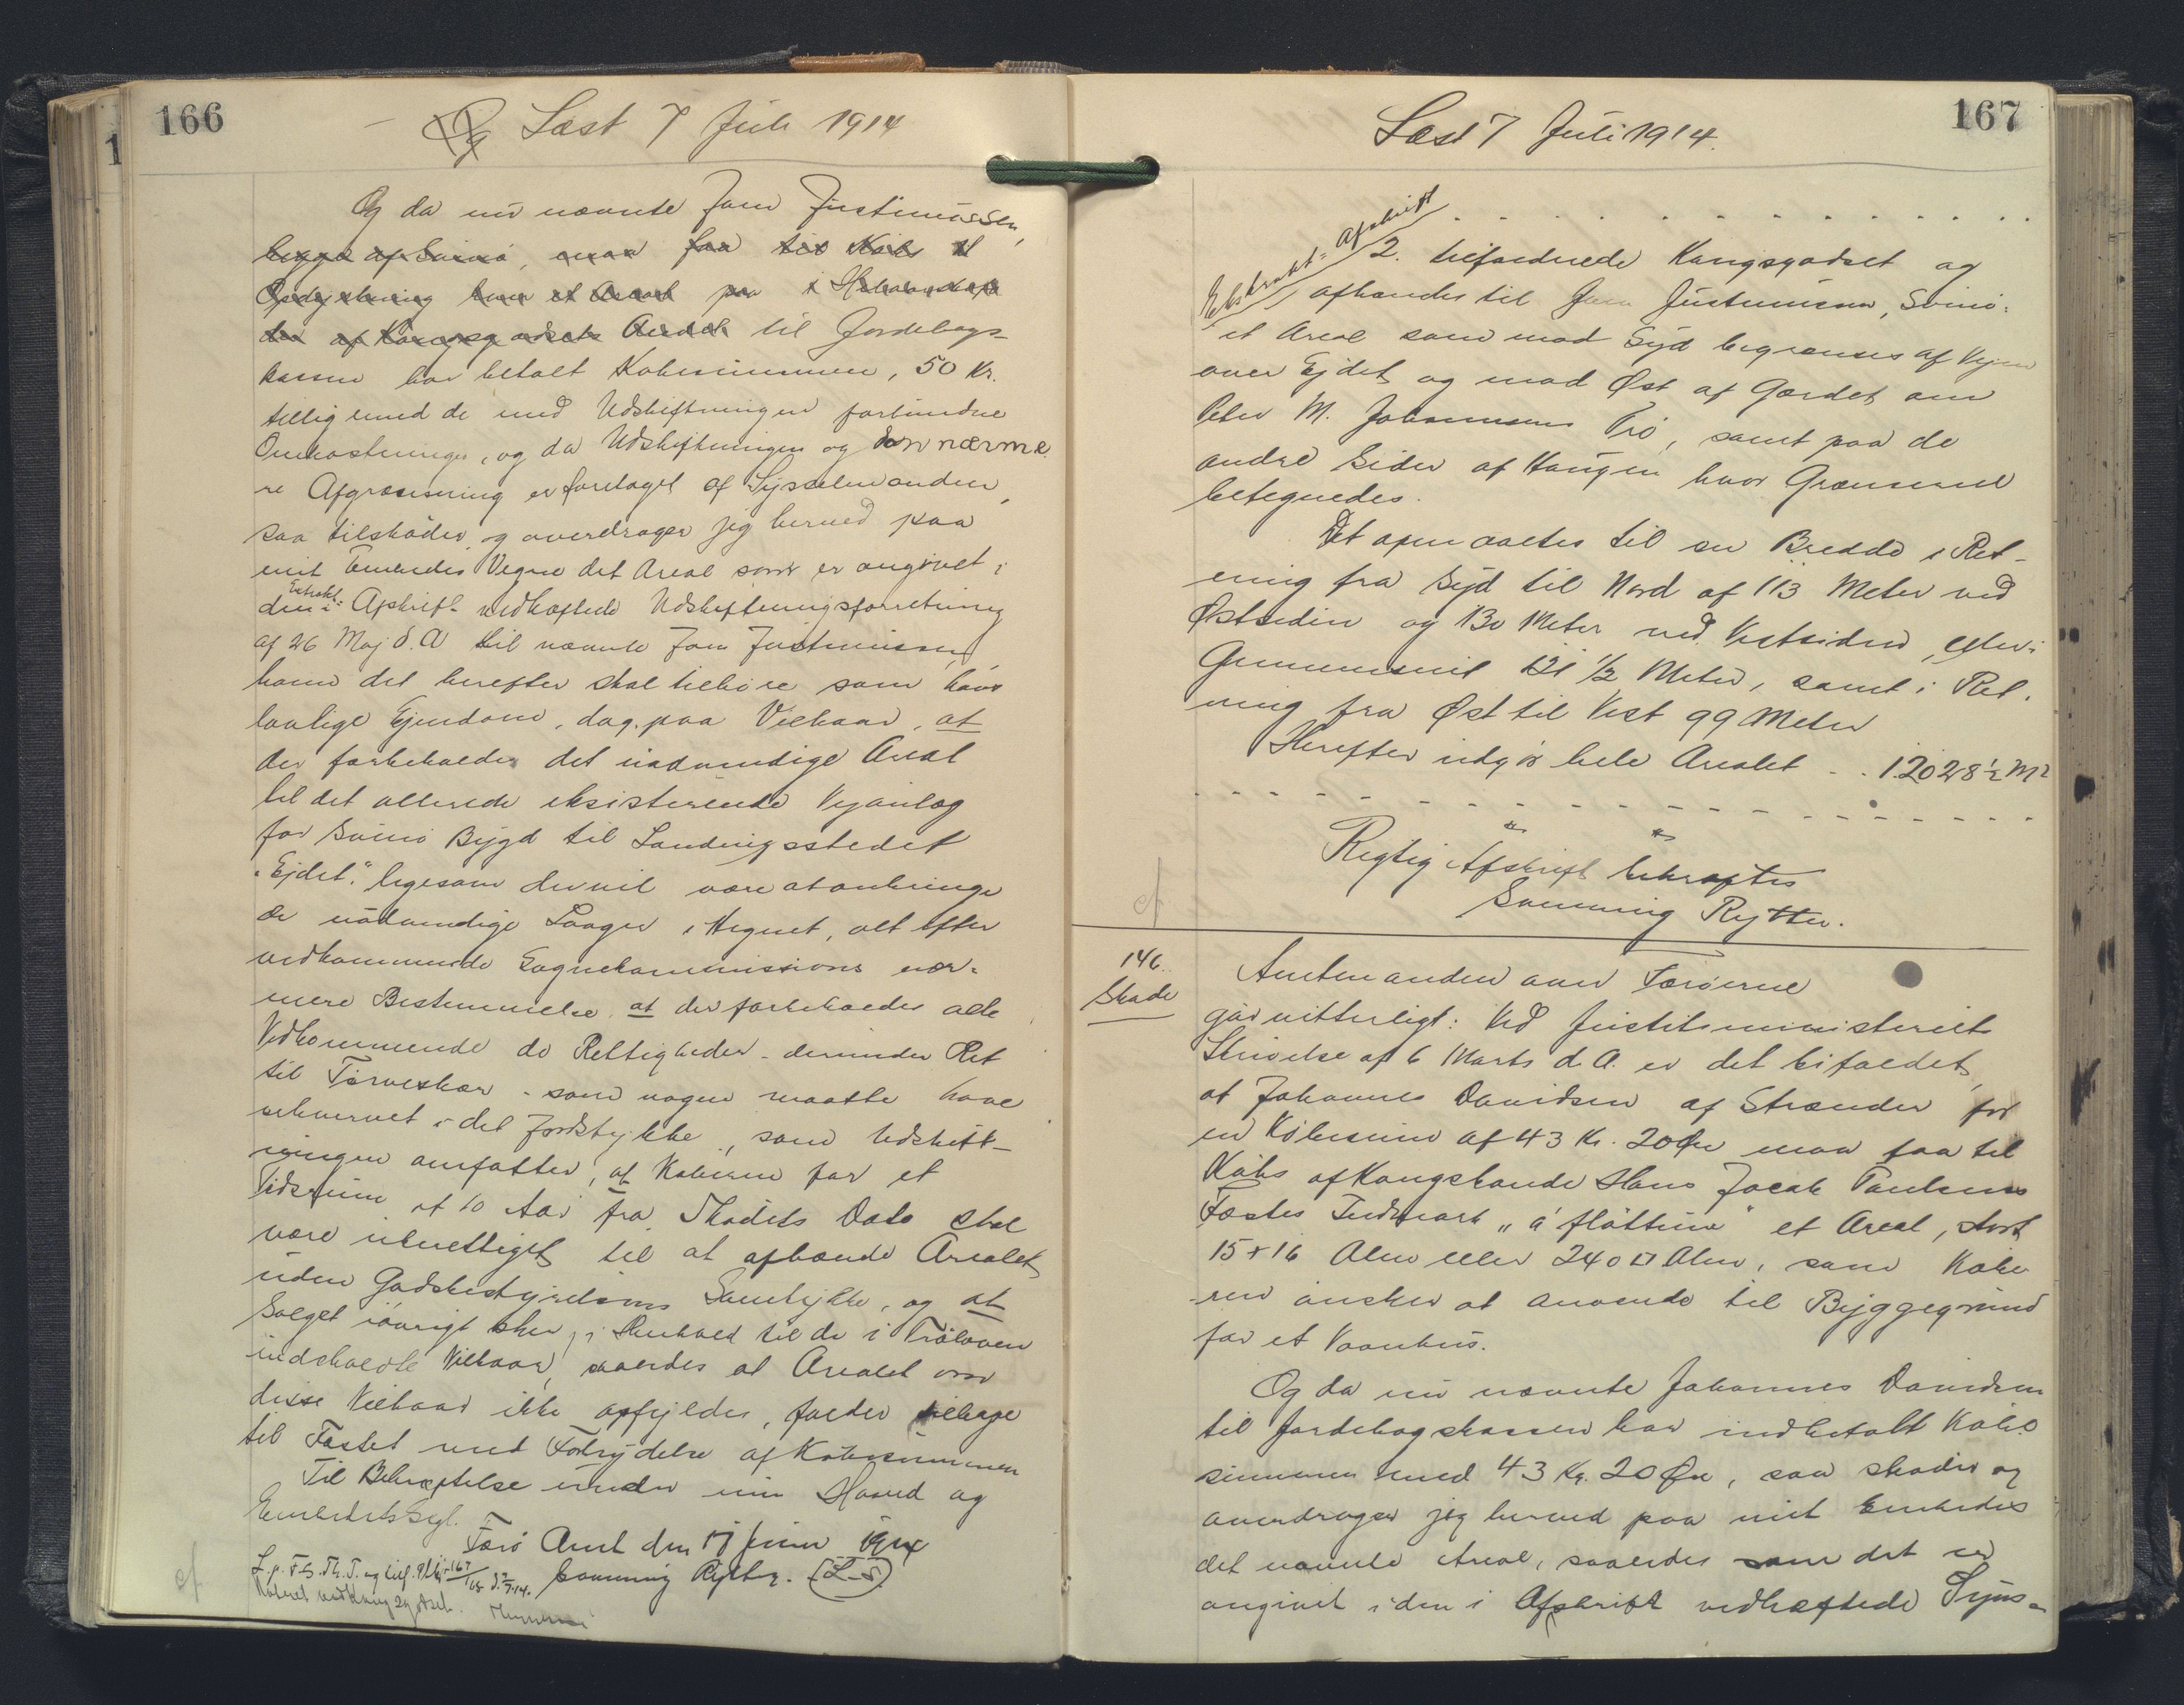 166
Og Læst 7 Juli 1914
Og da nu nævnte Joen Justinussen,
bygd af Svinø, maa faa til Købs til
Opdyrkning som et Areal paa i Hektarskøb
der af Kongsgodsets Andel til Jordebogs-
kassen har betalt Købesummen, 50 Kr.
tillig med de med Udskiftningen forbundne
Omkostninger, og da Udskiftningen og den nærme
re Afgrænsning er foretaget af Sysselmanden,
saa tilskøder og overdrager jeg herved paa
mit Embedes Vegne det Areal som er angivet i
den i Extrakt- Afskrift vedhæftede Udskiftningsforretning
af 26 Maj d. A til nævnte Joen Justinussen,
ham det herefter skal tilhøre som hans
lovlige Ejendom, dog paa Vilkaar, at
der forbeholdes det nødvendige Areal
til det allerede eksisterende Vejanlæg
for Svinø Bygd til Landingsstedet
"Ejdet." ligesom der vil være at anbringe
de nødvendige Laager i Hegnet, alt efter
vedkommende Sognekommissions nær-
mere Bestemmelse at der forbeholdes alle
Vedkommende de Rettigheder - derunder Ret
til Tørveskær - som nogen maatte have
erhvervet i det Jordstykke, som Udskift-
ningen omfatter, at Køberen for et
Tidsrum af 10 Aar fra Skødets Dato skal
være uberettiget til at afhænde Arealet
uden Godsbestyrelsens Samtykke, og at
Salget iøvrigt sker i Henhold til de i Trøloven
indeholdte Vilkaar, saaledes at Arealet om
disse Vilkaar ikke opfyldes, falder tilbage
til Fæstet med Fortrydelse af Købesummen
Til Bekræftelse under min Haand og
Embedets Segl.
Færø Amt den 17 Juni 1914
Svenning Rytter. (L.S)
167
Læst 7 Juli 1914.
Ekstrakt-Afskrift
2. tilfaldnede Kongsgodset og
afhændes til Joen Justinussen, Svinø:
et Areal som mod Syd begrænses af Vejen
over Ejdet og mod Øst af Gærdet om
Peter M. Johannesens Trø, samt paa de
andre Sider af Haugen hvor Grænserne
betegnedes.
Det opmaaltes til en Bredde i Ret-
ning fra Syd til Nord af 113 Meter ved
Østsiden og 130 Meter ved Vestsiden, eller i
Gennemsnit 121 1/2 Meter, samt i Ret-
ning fra Øst til Vest 99 Meter
Herefter udgør hele Arealet . . 12028 1/2 M2
Rigtig Afskrift bekræftes
Svenning Rytter.
146.
Skøde
Amtmanden over Færøerne
gør vitterligt: Ved Justitsministeriets
Skrivelse af 6 Marts d. A. er det bifaldet,
at Johannes Davidsen af Strænder for
en Købesum af 43 Kr. 20 Øre maa faa til
Købs af Kongsbonde Hans Jacob Poulsens
Fæstes Indmark "á fløttinu" et Areal, stort
15 x 16 Alen eller 240 □ Alen, som Købe-
ren ønsker at anvende til Byggegrund
for et Vaanhus.
Og da nu nævnte Johannes Davidsen
til Jordebogskassen har indbetalt Købe
summen med 43 Kr. 20 Øre, saa skøder og
overdrager jeg herved paa mit Embedes
det nævnte Areal, saaledes som det er
angivet i den i Afskrift vedhæftede Syns-